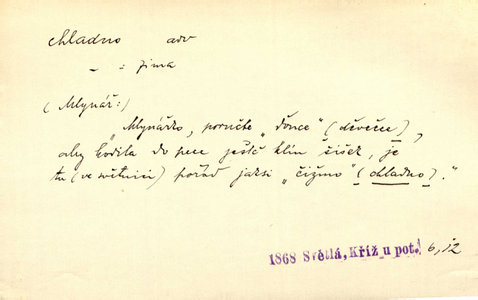 chladno adv
– : zima
(Mlynář:)
"Mlynářko, poručte "donce" (děvečce),
aby hodila do pece ještě klín šišek, je
tu (ve světnici) pořád jaksi "čižno" (chladno)."
1868 Světlá, Kříž u pot. 6, 12